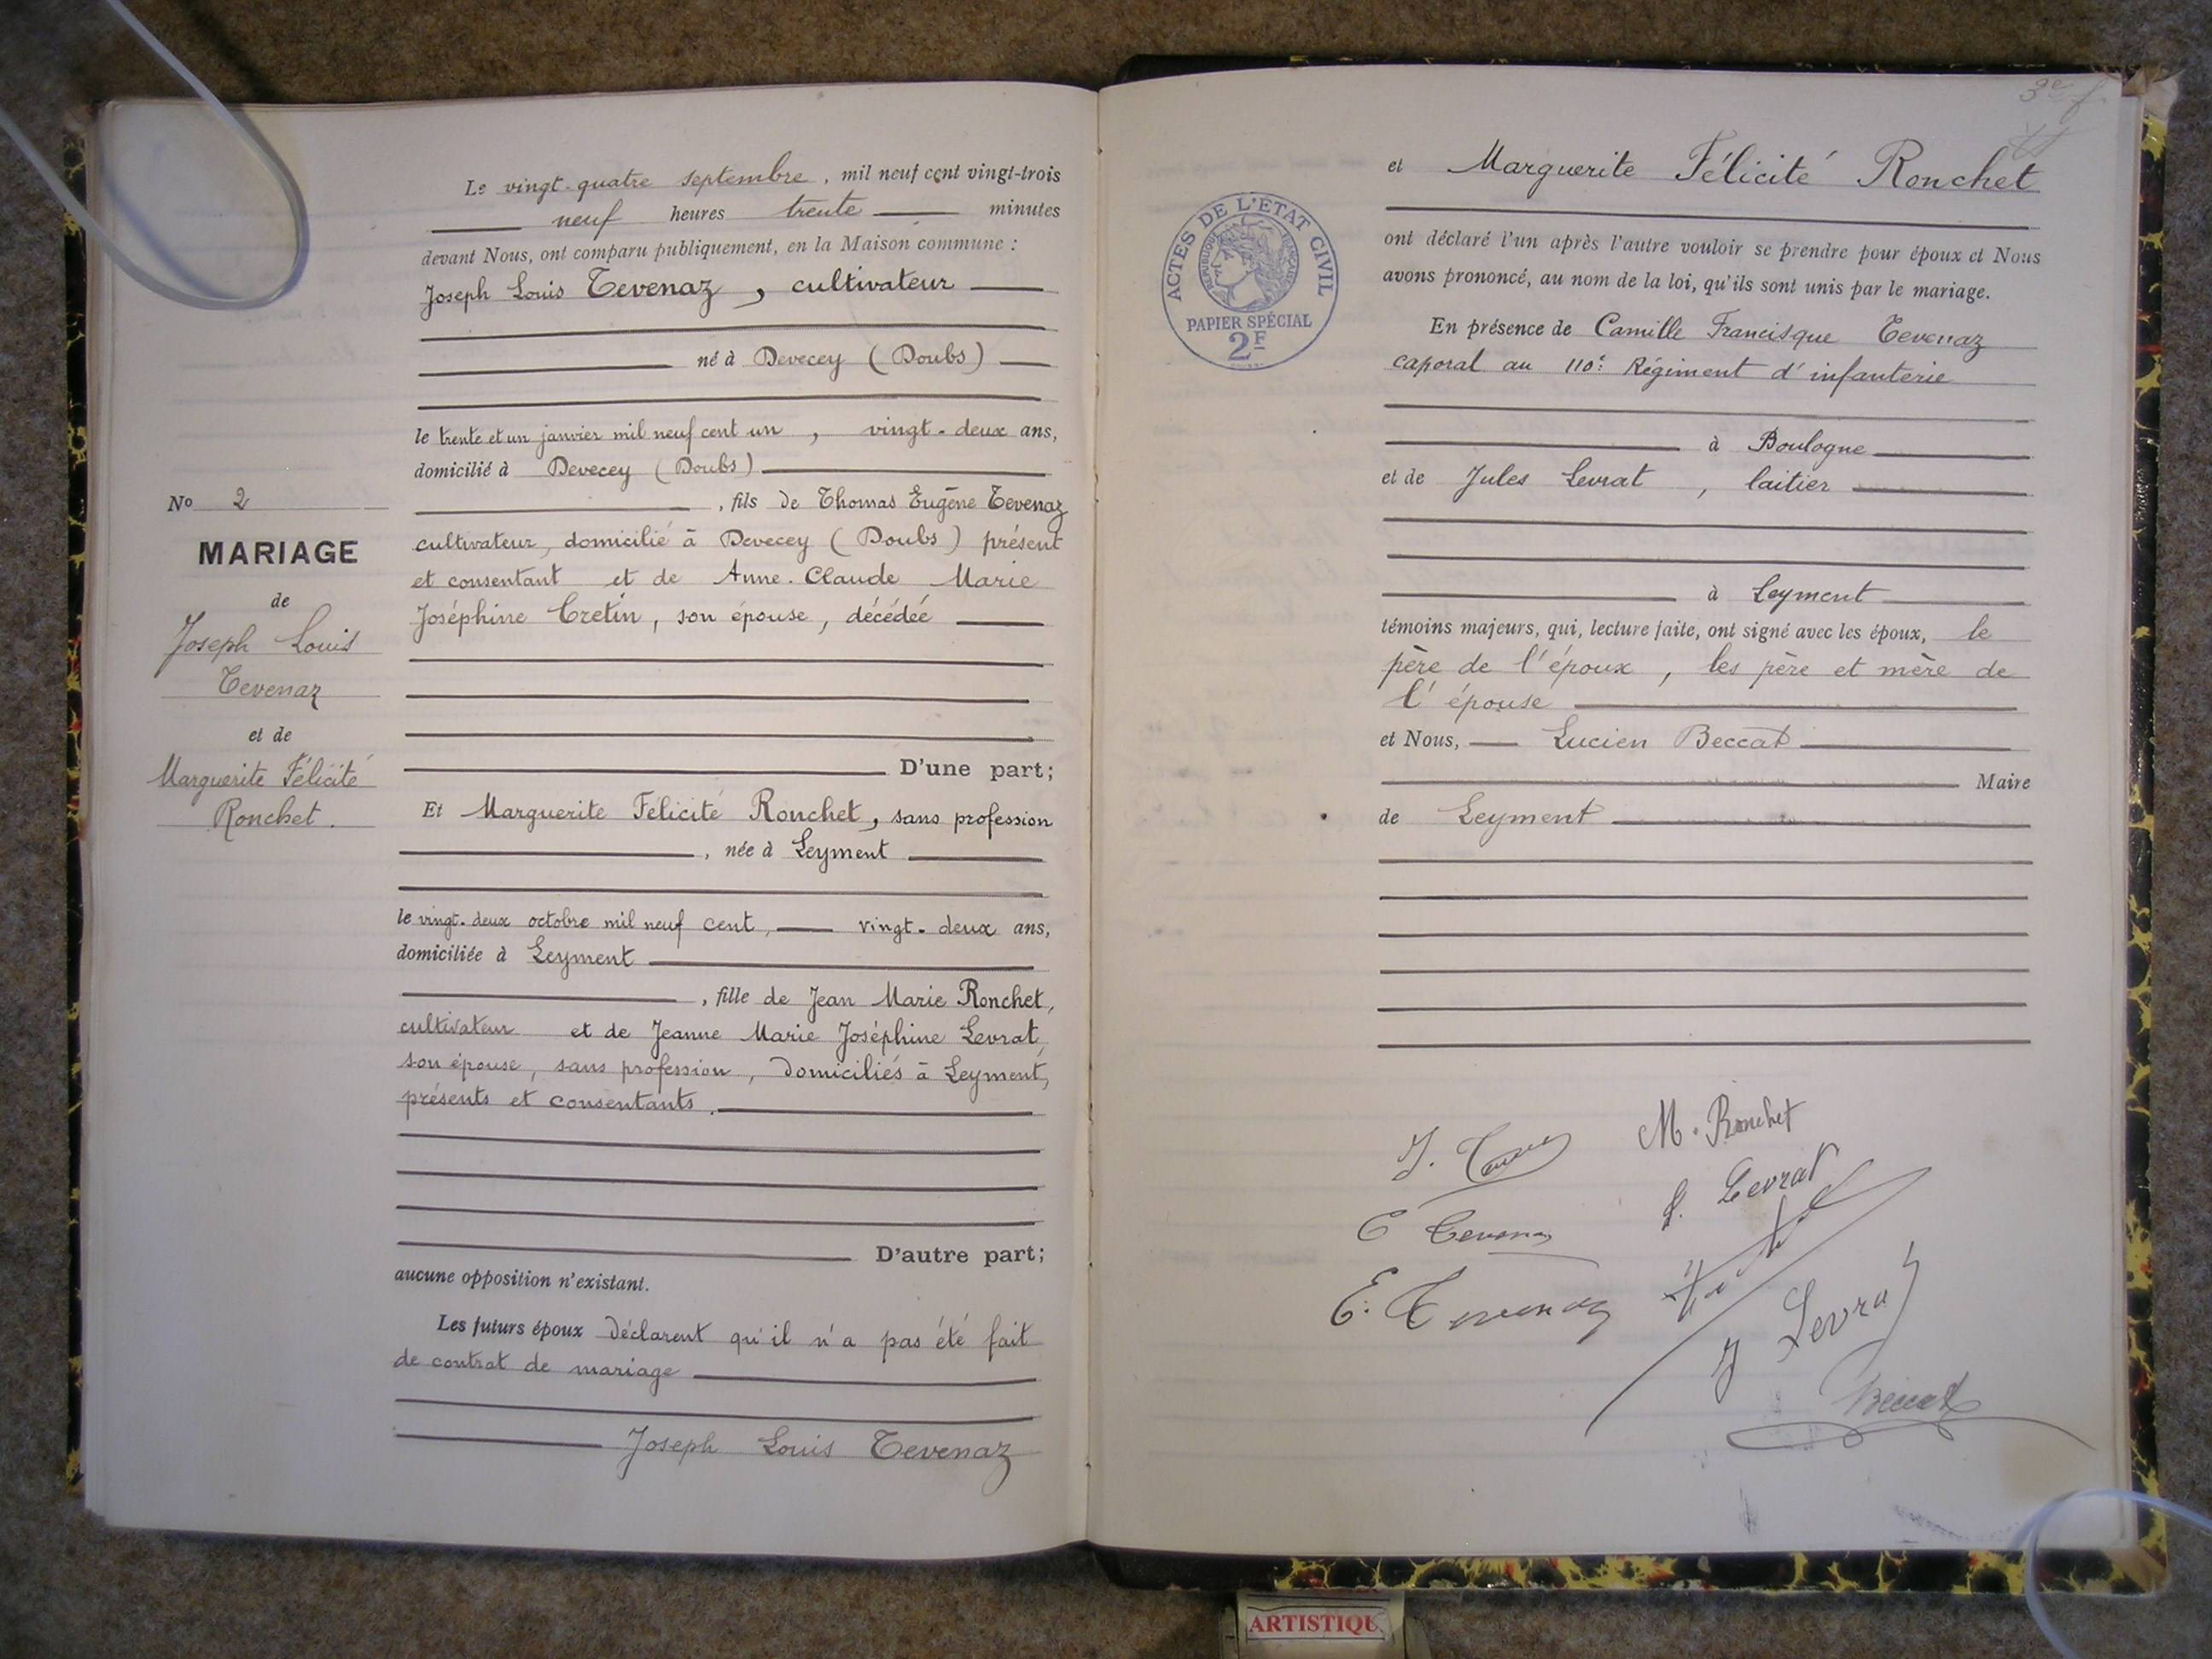 Le vingt-quatre septembre, mil neuf cent vingt-trois
neuf heures trente minutes
devant Nous, ont comparu publiquement, en la Maison commune :
Joseph Louis Tevenaz, cultivateur
né à Devecey (Doubs)
le trente et un janvier mil neuf cent un, vingt-deux ans,
domicilié à Devecey (Doubs)
, fils de Thomas Eugène Tevenaz
cultivateur, domicilié à Devecey (Doubs) présent
et consentant et de Anne-Claude Marie
Joséphine Cretin, son épouse, décédée
D'une part;
No 2
MARIAGE
de
Joseph Louis
Tevenaz
et de
Marguerite Félicité
Ronchet.
Et Marguerite Félicité Ronchet, sans profession
, née à Leyment
le vingt-deux octobre mil neuf cent, vingt-deux ans,
domiciliée à Leyment
, fille de Jean Marie Ronchet,
cultivateur et de Jeanne Marie Joséphine Levrat,
son épouse, sans profession, domiciliés à Leyment,
présents et consentants.
D'autre part;
aucune opposition n'existant.
Les futurs époux déclarent qu'il n'a pas été fait
de contrat de mariage
Joseph Louis Tevenaz
3e f.
et Marguerite Félicité Ronchet
ACTES DE L'ETAT CIVIL
REPUBLIQUE FRANÇAISE
PAPIER SPÉCIAL
2F
ont déclaré l'un après l'autre vouloir se prendre pour époux et Nous
avons prononcé, au nom de la loi, qu'ils sont unis par le mariage.
En présence de Camille Francisque Tevenaz
caporal au 110e Régiment d'infanterie
à Boulogne
et de Jules Levrat, laitier
à Leyment
témoins majeurs, qui, lecture faite, ont signé avec les époux, le
père de l'époux, les père et mère de
l'épouse
et Nous, Lucien Beccat
Maire
de Leyment
M. Ronchet
J. Tevenaz
J. Levrat
C Tevenaz
E. Tevenaz
J Levrat
Beccat
ARTISTIQU